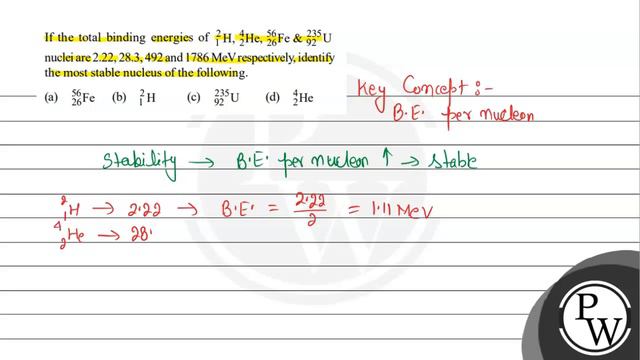 If the total binding energies of ²₁H, ⁴₂He, ⁵⁶₂₆Fe & ²³⁵₉₂U
nuclei are 2.22, 28.3, 492 and 1786 MeV respectively, identify
the most stable nucleus of the following.
(a) ⁵⁶₂₆Fe (b) ²₁H (c) ²³⁵₉₂U (d) ⁴₂He
Key Concept :-
B.E. per nucleon
Stability → B.E. per nucleon ↑ → stable
²₁H → 2.22 → B.E. = 2.22/2 = 1.11 MeV
⁴₂He → 28.
PW